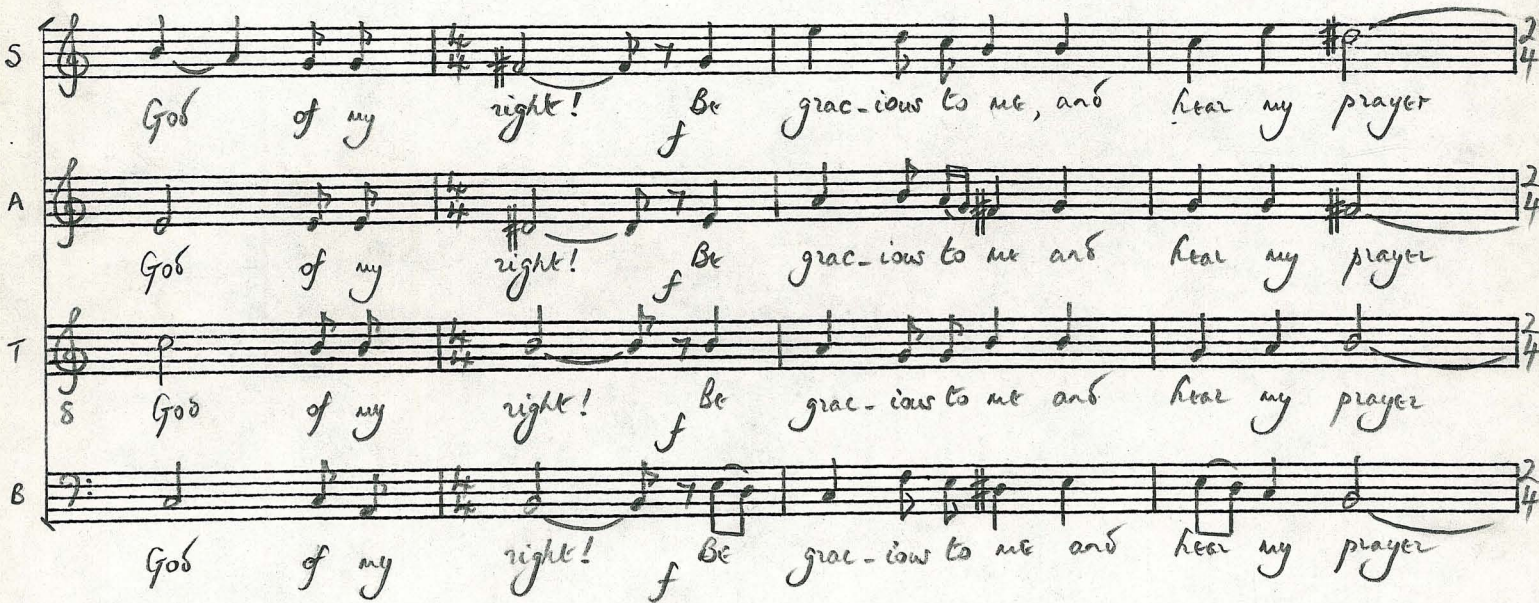 S
4 4 2 4
God of my right! Be grac-ious to me, and hear my prayer
f
A
4 4 2 4
God of my right! Be grac-ious to me and hear my prayer
f
T
4 4 2 4
8 God of my right! Be grac-ious to me and hear my prayer
f
B
4 4 2 4
God of my right! Be grac-ious to me and hear my prayer
f